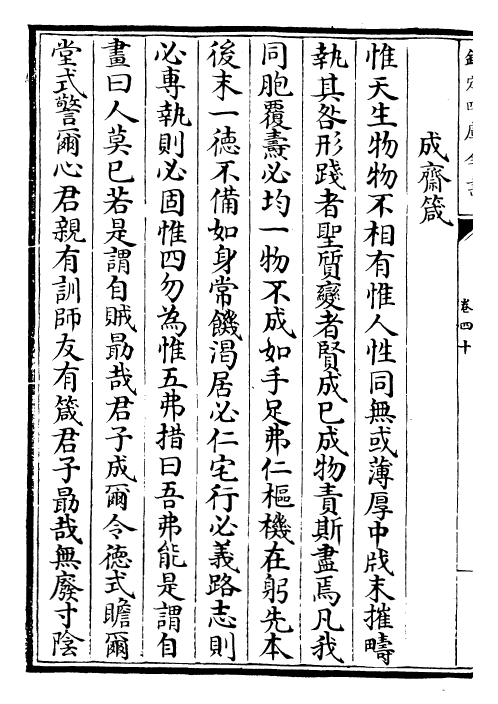 欽定四庫全書
卷四十
成齋箴
惟天生物物不相有惟人性同無或薄厚中戕末摧疇
執其咎形踐者聖質變者賢成已成物責斯盡焉凡我
同胞覆燾必均一物不成如手足弗仁樞機在躬先本
後末一德不備如身常饑渴居必仁宅行必義路志則
必専執則必固惟四勿為惟五弗措曰吾弗能是謂自
畫曰人莫已若是謂自賊朂哉君子成爾令徳式瞻爾
堂式警爾心君親有訓師友有箴君子朂哉無廢寸陰